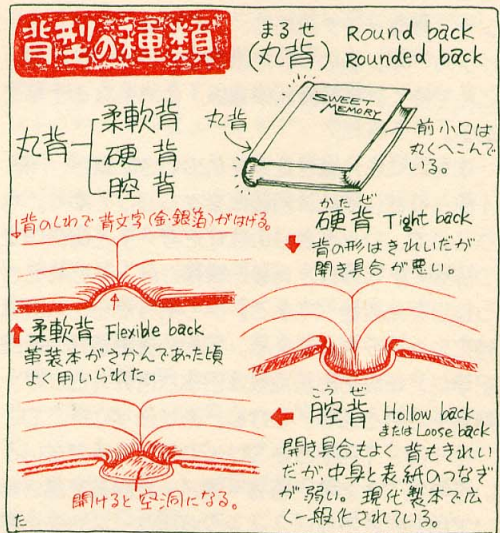 背型の種類
まるせ
(丸背)
Round back
Rounded back
丸背
柔軟背
硬背
腔背
丸背
SWEET
MEMORY
前小口は
丸くへこんで
いる。
↓背のしわで背文字(金・銀箔)がはげる。
かたぜ
硬背 Tight back
背の形はきれいだが
開き具合が悪い。
柔軟背 Flexible back
革装本がさかんであった頃
よく用いられた。
こうぜ
腔背 Hollow back
またはLoose back
開き具合もよく背もきれい
だが、中身と表紙のつなぎ
が弱い。現代製本で広
く一般化されている。
開けると空洞になる。
た